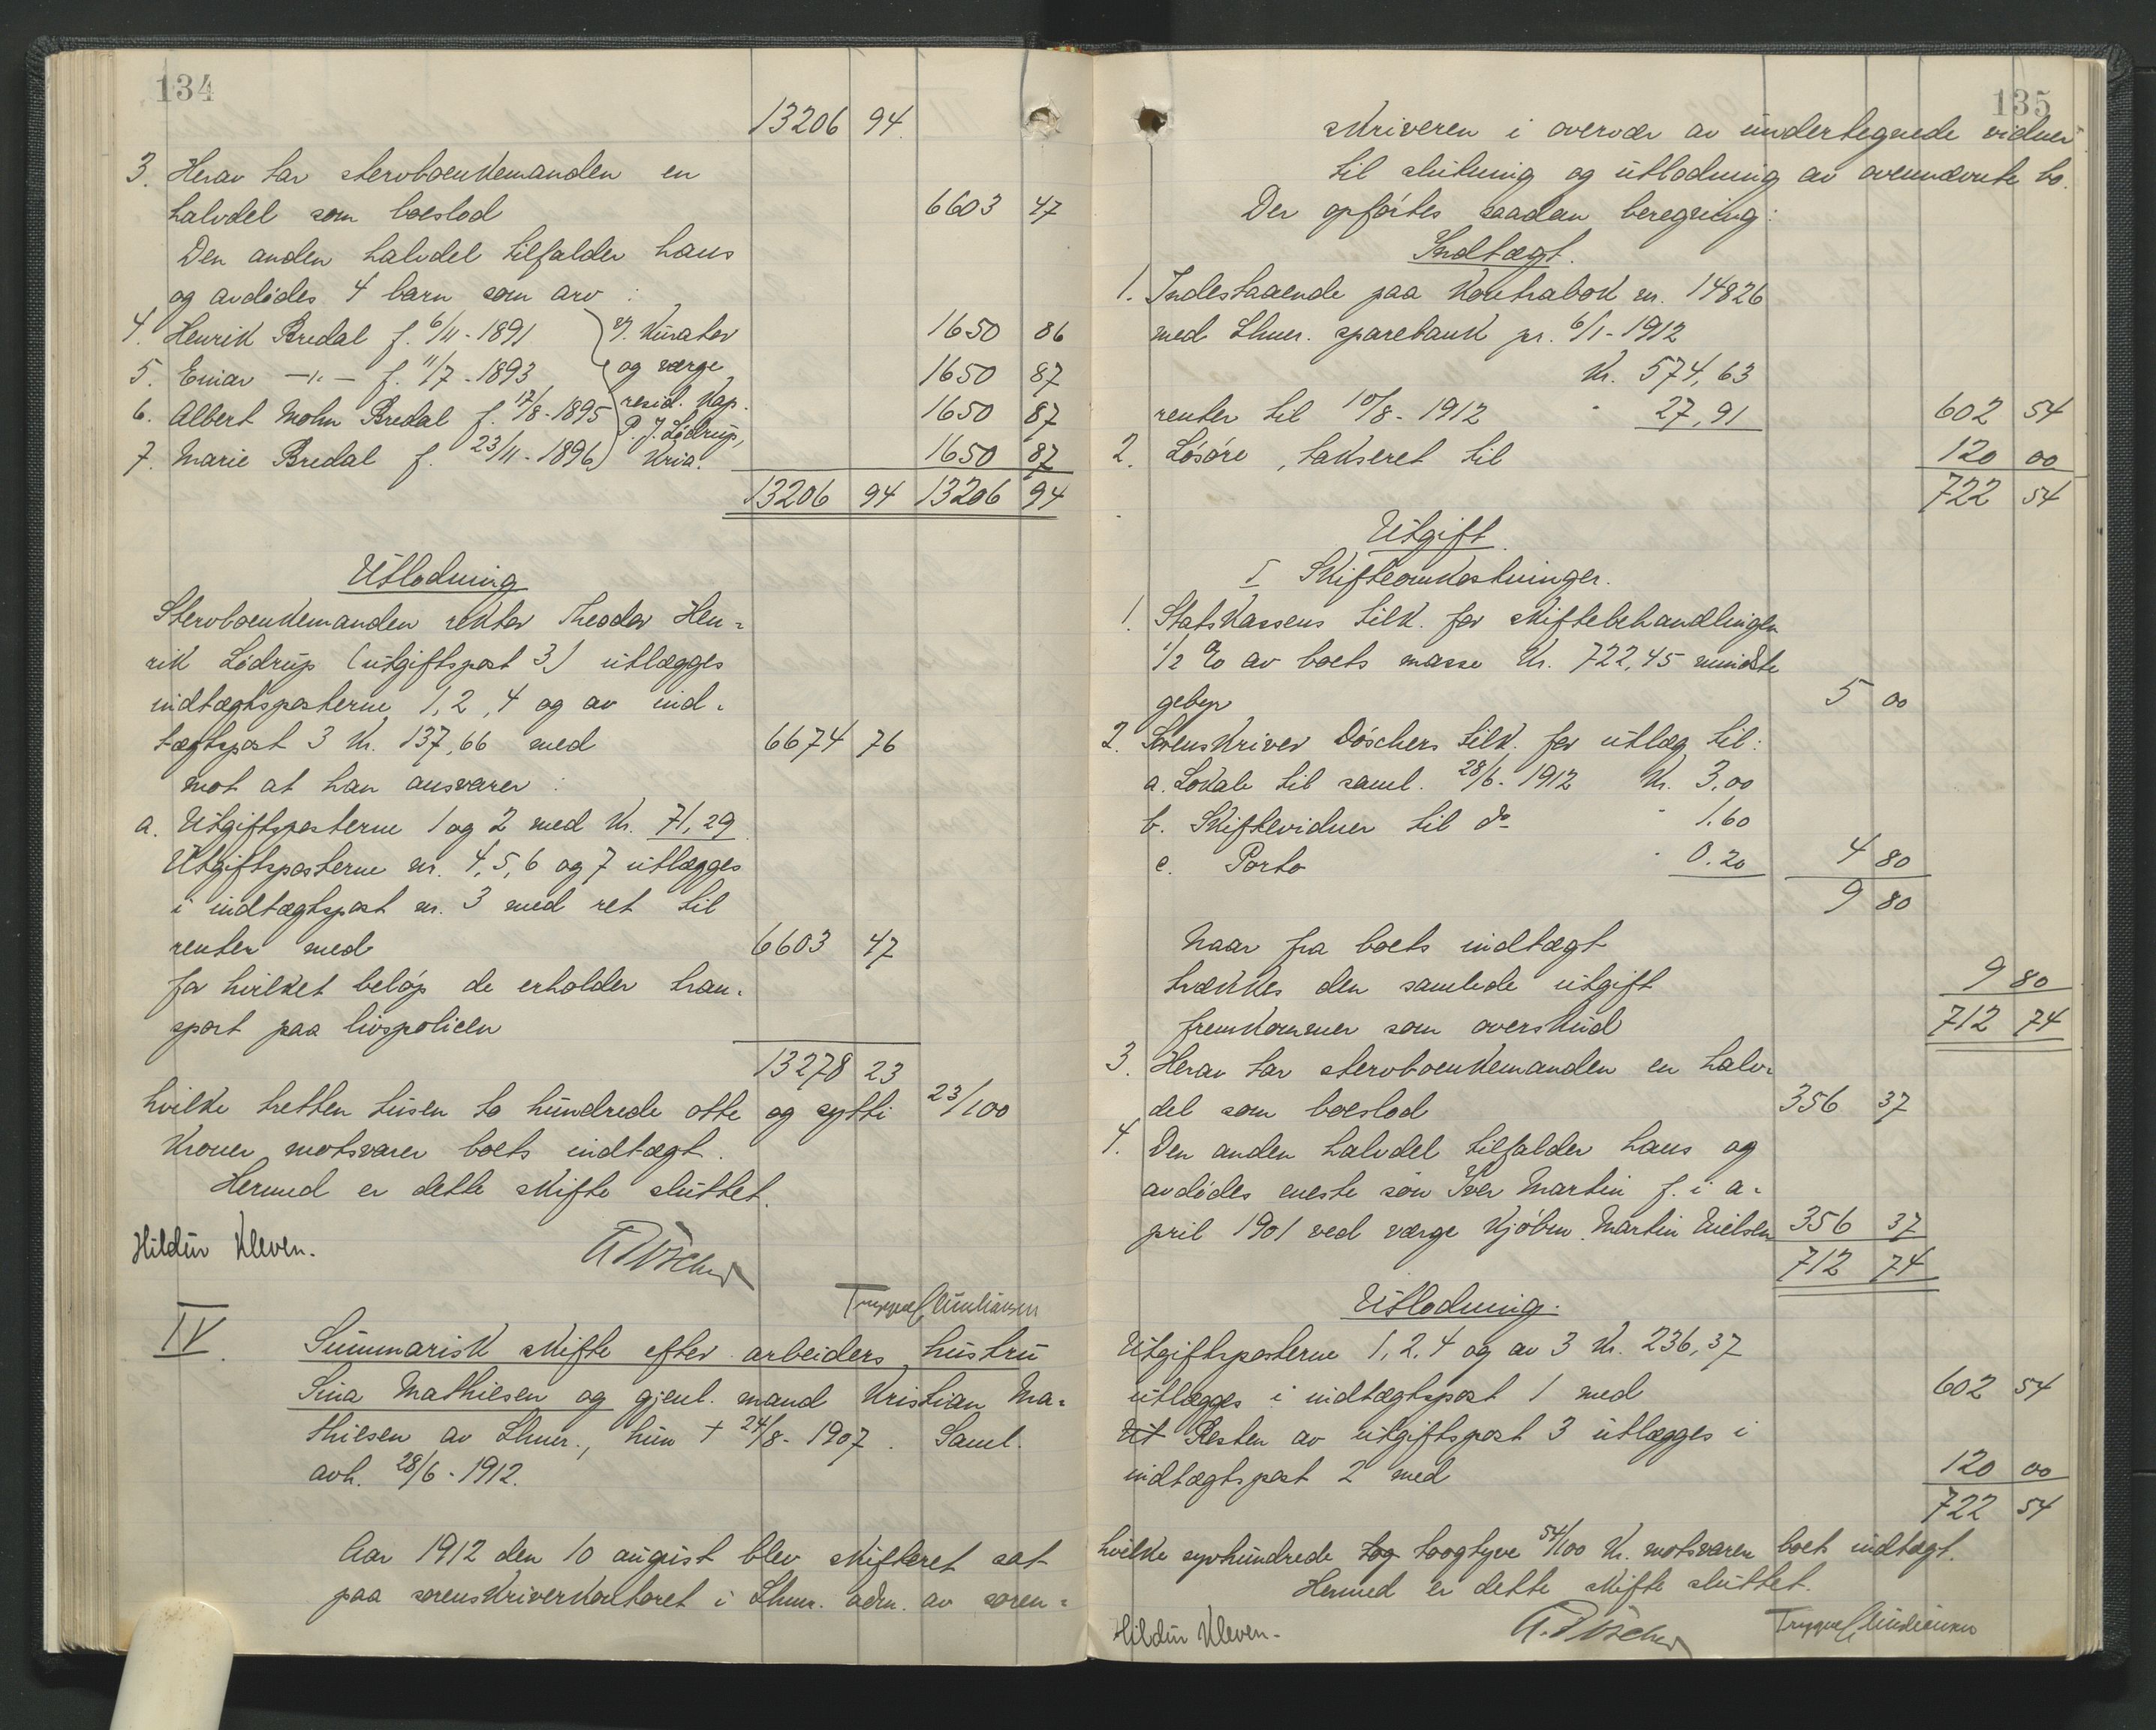 134
13206 94.
3. Herav tar stervboenkemanden en
halvdel som boeslod 6603 47
Den anden halvdel tilfalder hans
og avdødes 4 barn som arv :
4. Henrik Bredal f. 6/11 - 1891 v/ Kurator 1650 86
5. Einar -"- f. 11/7 - 1893 og værge 1650 87
6. Albert Mohn Bredal f. 17/8 - 1895 resid. Kap. P. J. Lødrup, 1650 87
7. Marie Bredal f. 23/11 - 1896 Kria. 1650 87
13206 94 13206 94
Utlodning
Stervboenkemanden rektor Theodor Hen=
rik Lødrup (utgiftspost 3) utlægges
indtægtsposterne 1, 2, 4 og av ind=
tægtspost 3 Kr. 137,66 med 6674 76
mot at han ansvarer :
a. Utgiftsposterne 1 og 2 med Kr. 71,29
Utgiftsposterne nr. 4, 5, 6 og 7 utlægges
i indtægtspost nr. 3 med ret til
renter med 6603 47
for hvilket beløp de erholder tran=
sport paa livspolicen
13278 23
hvilke tretten tusen to hundrede otte og sytti 23/100
Kroner motsvarer boets indtægt.
Hermed er dette skifte sluttet.
Hildur Kleven.
Trygve
IV. Summarisk skifte efter arbeiders hustru
Sina Mathiesen og gjenl. mand Kristian Ma=
thiesen av Lhmr., hun + 24/8 - 1907. Saml.
avh. 28/6 - 1912.
Aar 1912 den 10 august blev skifteret sat
paa sorenskriverkontoret i Lhmr. adm. av soren=
135
skriveren i overvær av undertegnede vidner
til slutning og utlodning av ovennævnte bo.
Der opførtes saadan beregning:
Indtægt.
1. Indestaaende paa Kontrabok nr. 14826
med Lhmr. sparebank pr. 6/1 - 1912
Kr. 574,63
renter til 10/8 - 1912 " 27,91 602 54
2. Løsøre, takseret til 120 00
722 54
Utgift.
I Skifteomkostninger.
1. Statskassens tilk. for skiftebehandlingen
1/2 % av boets masse Kr. 722,45 mindste
gebyr 5 00
2. Sorenskriver Döschers tilk. for utlæg til:
a. Lokale til saml. 28/6 - 1912 Kr. 3,00
b. Skiftevidner til do " 1.60
c. Porto " 0.20 4 80
9 80
Naar fra boets indtægt
trækkes den samlede utgift 9 80
fremkommer som overskud 712 74
3. Herav tar stervboenkemanden en halv=
del som boeslod 356 37
4. Den anden halvdel tilfalder hans og
avdødes eneste søn Iver Martin f. i a=
pril 1901 ved værge Kjøbm. Martin Nielsen 356 37
712 74
Utlodning.
Utgiftsposterne 1, 2, 4 og av 3 Kr. 236,37
utlægges i indtægtspost 1 med 602 54
Ut Resten av utgiftspost 3 utlægges i
indtægtspost 2 med 120 00
722 54
hvilke syvhundrede tog toogtyve 54/100 Kr. motsvarer boet indtægt.
Hermed er dette skifte sluttet.
Hildur Kleven.
Trygve